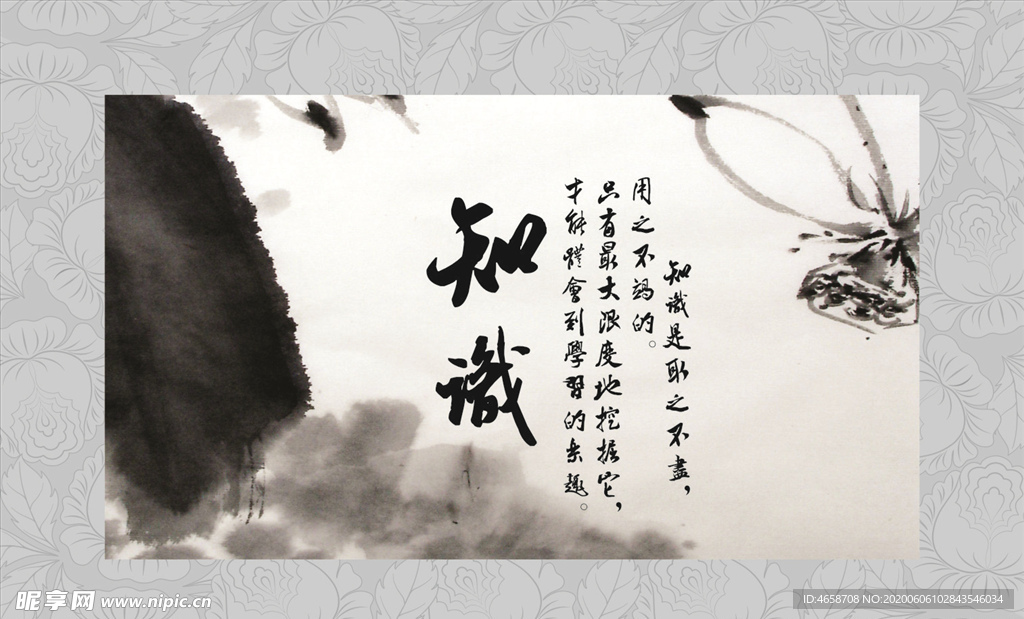 知識是取之不盡，
用之不竭的。
只有最大限度地挖掘它，
才能體會到學習的樂趣。
知識
昵享网 www.nipic.cn
ID:4658708 NO:20200606102843546034